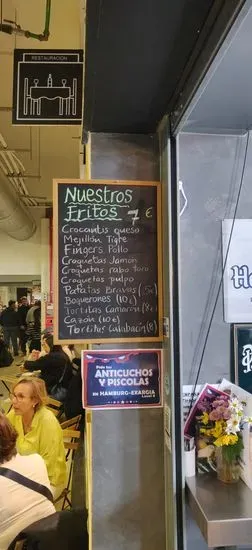 RESTAURACIÓN
Nuestros
Fritos 7 €
Crocantis queso
Mejillón Tigre
Fingers Pollo
Croquetas Jamón
Croquetas rabo toro
Croquetas pulpo
Patatas Bravas (5€)
Boquerones (10€)
Tortitas Camarón (8€)
Cazón (10€)
Tortitas Calabacín (8)
Pide tus
ANTICUCHOS
Y PISCOLAS
en HAMBURG-EXARGIA